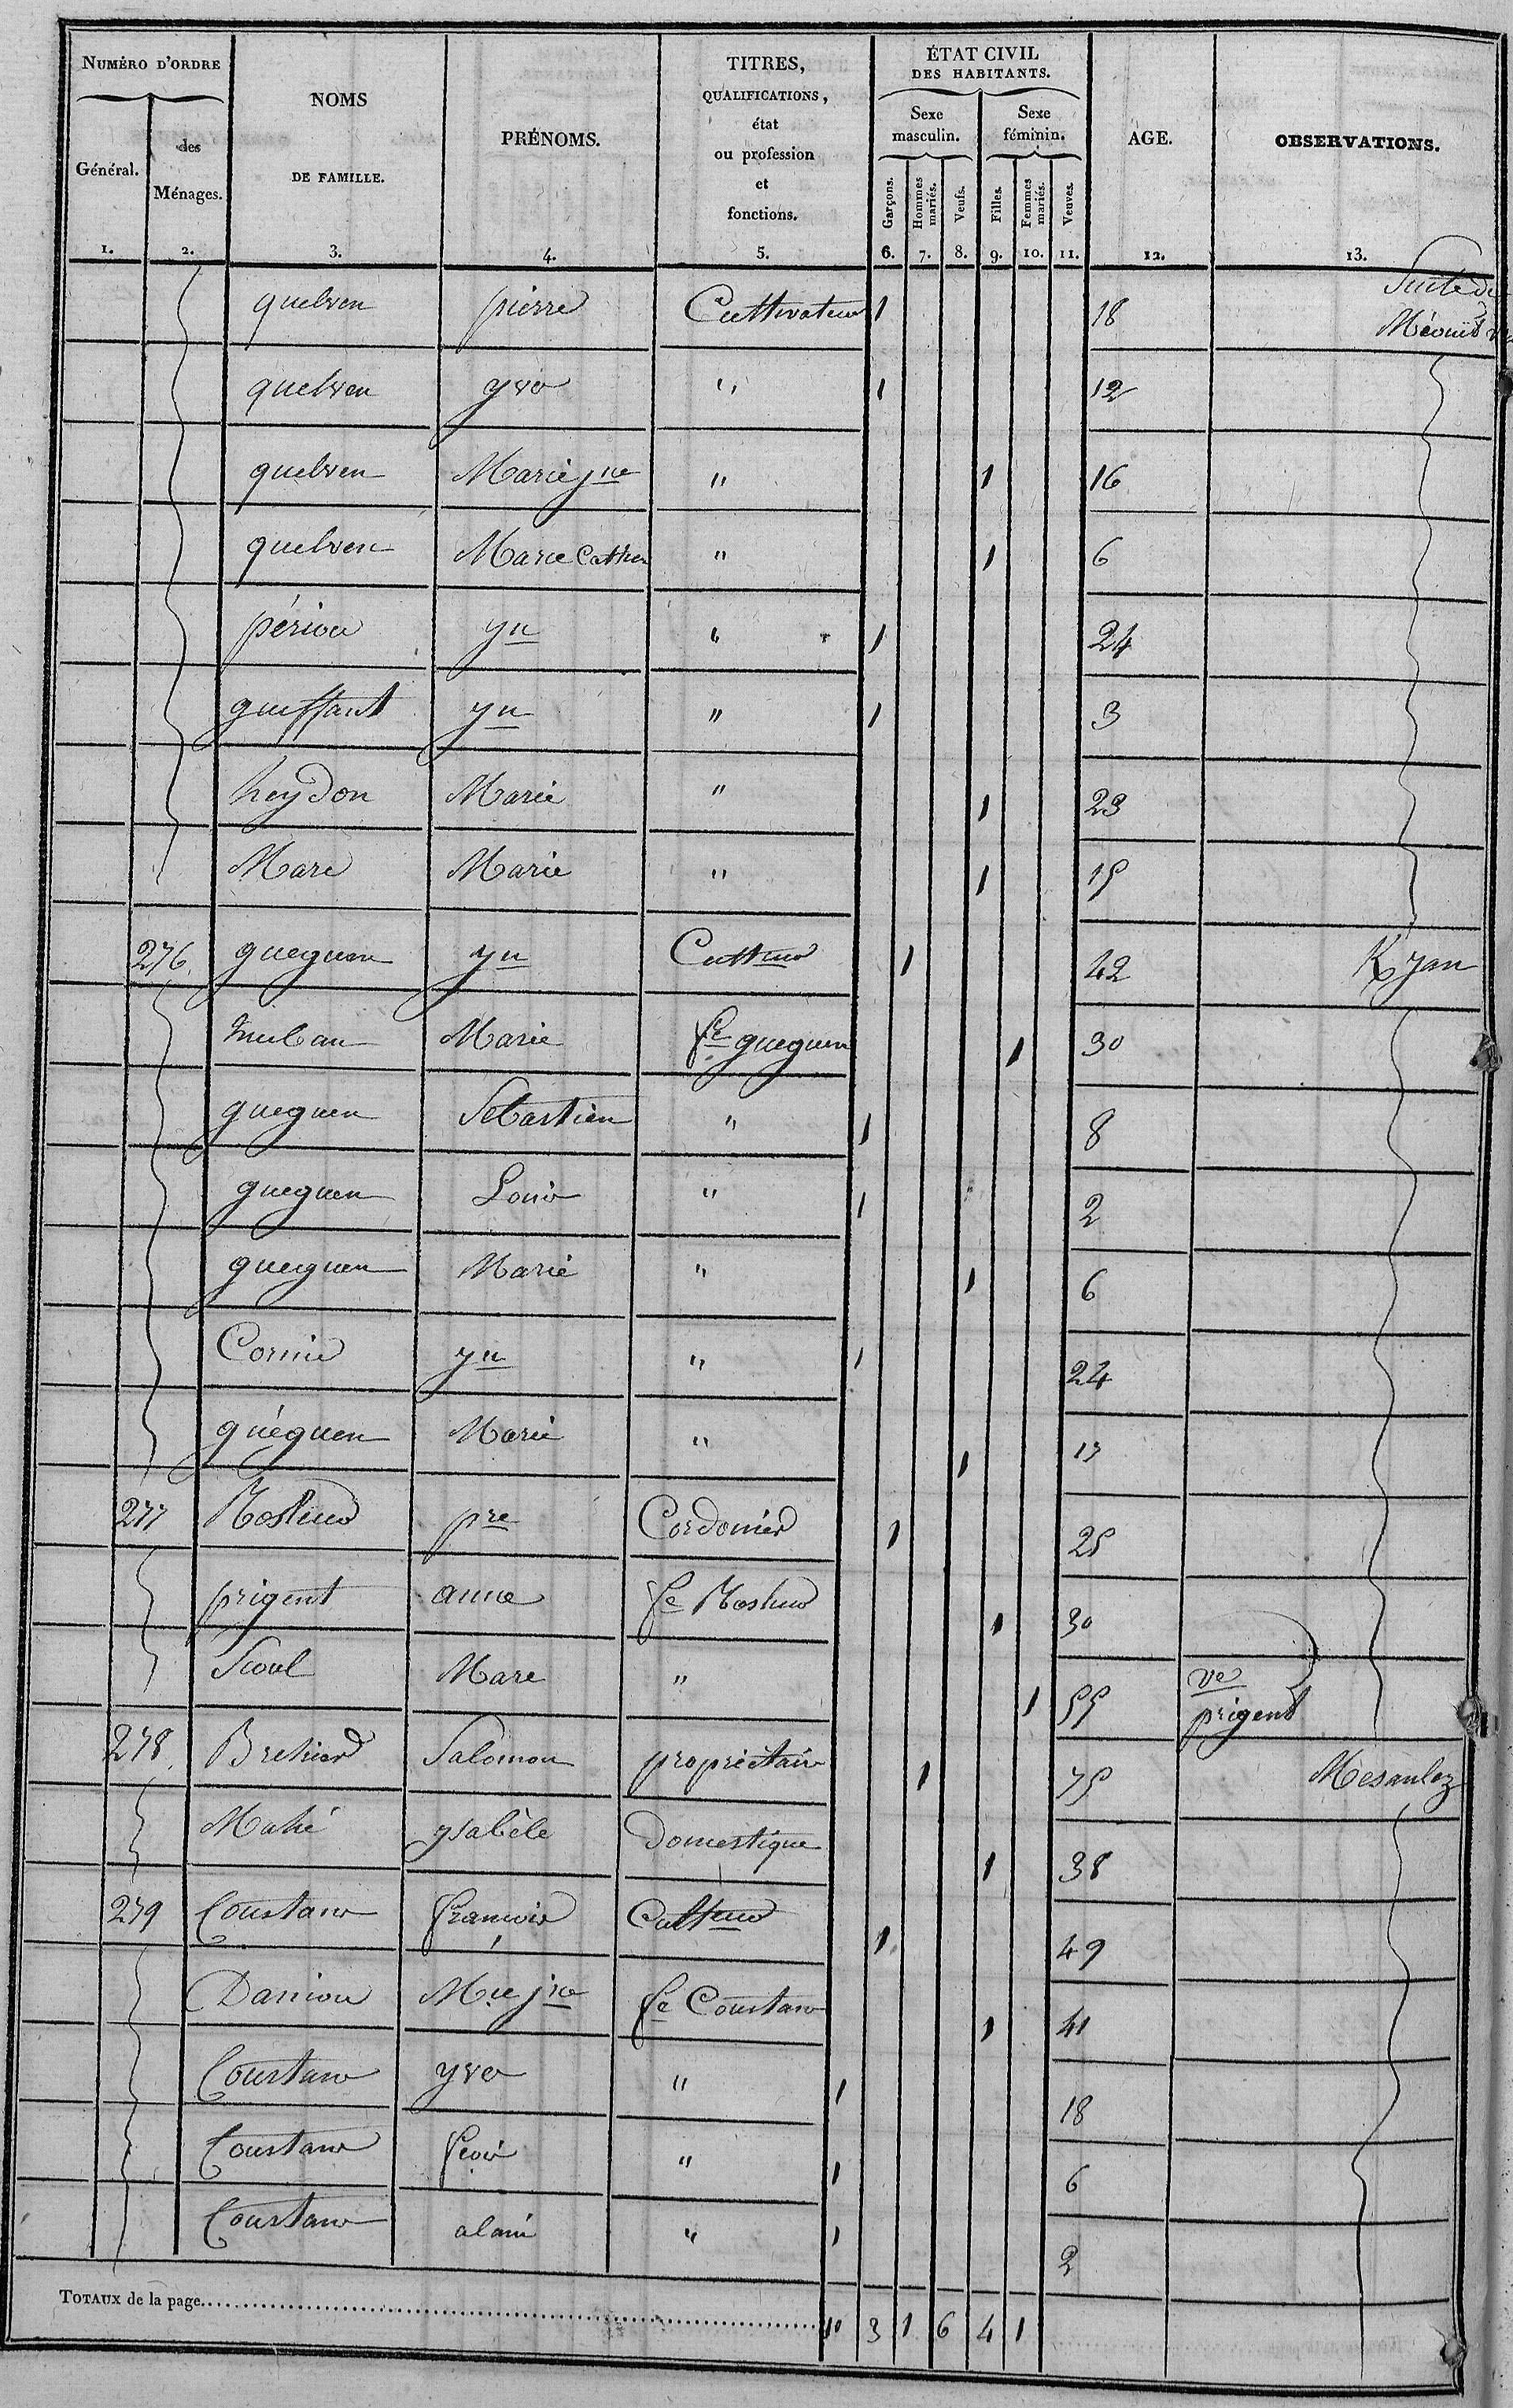 NUMÉRO D'ORDRE
Général.
des Ménages.
NOMS
DE FAMILLE.
PRÉNOMS.
TITRES,
QUALIFICATIONS,
état
ou profession
et
fonctions.
ÉTAT CIVIL
DES HABITANTS.
Sexe masculin.
Sexe féminin.
Garçons.
Hommes mariés.
Veufs.
Filles.
Femmes mariés.
Veuves.
AGE.
OBSERVATIONS.
1. 2. 3. 4. 5. 6. 7. 8. 9. 10. 11. 12. 13.
Suite de
quelven pierre Cultivateur 1 18
quelven yves " 1 12
quelven Marie jne " 1 16
quelven Marie Cather " 1 6
périou yn " 1 24
guiffant yn " 1 3
heydon Marie " 1 23
Mare Marie " 1 15
276 gueguen yn Culteur 1 42 K yan
Marie fe gueguen 1 30
gueguen Sebastien " 1 8
gueguen Louis " 1 2
gueguen Marie " 1 6
Cornic yn " 1 24
guéguen Marie " 1 13
277 pre Cordonier 1 25
prigent anne fe 1 30
Scoul Mare " 1 55 ve prigent
278 Brehier Salomon propriétaire 1 75 Mesaulez
Mahé ysabèle domestique 1 38
279 Coustans françois Culteur 1 49
Daniou Mie jne fe Coustans 1 41
Coustans yves " 1 18
Coustans fcois " 1 6
Coustans alain " 1 2
TOTAUX de la page 10 3 1 6 4 1